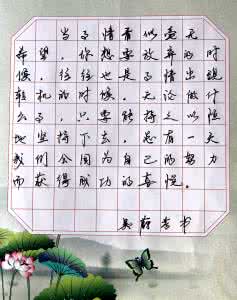 当事情看似毫无
希望，你想要放弃的时
候，往往也是事情出现
转机的时候。无论做什
么事，只要能持之以恒
地坚持下去，总有一天
我们会因为自己的努力
而获得成功的喜悦。
书